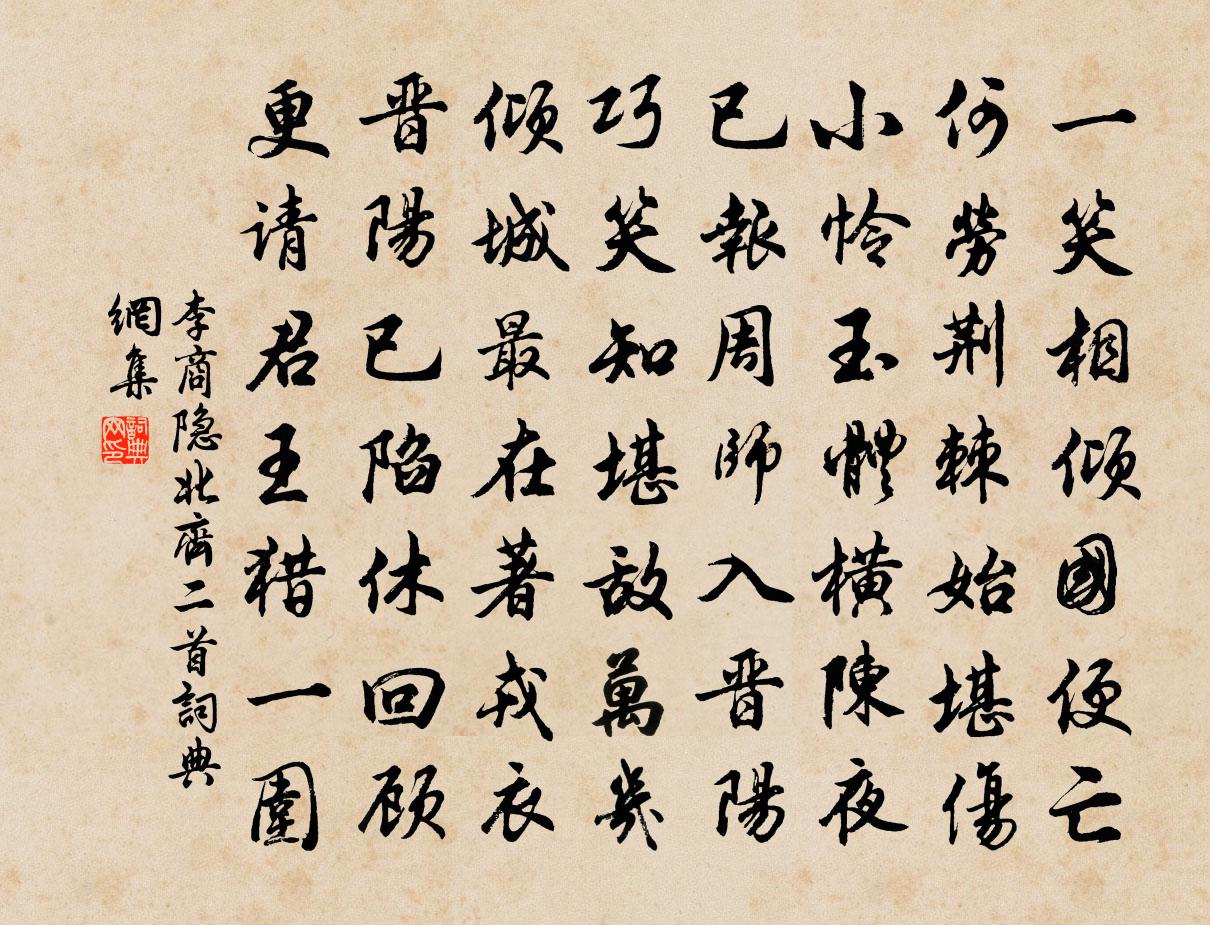 一笑相倾國便亡
何勞荆棘始堪傷
小怜玉體横陳夜
已報周師入晋陽
巧笑知堪敌萬幾
倾城最在著戎衣
晋陽已陷休回顾
更请君王猎一圍
李商隐北齊二首詞典
網集
詞典
网印